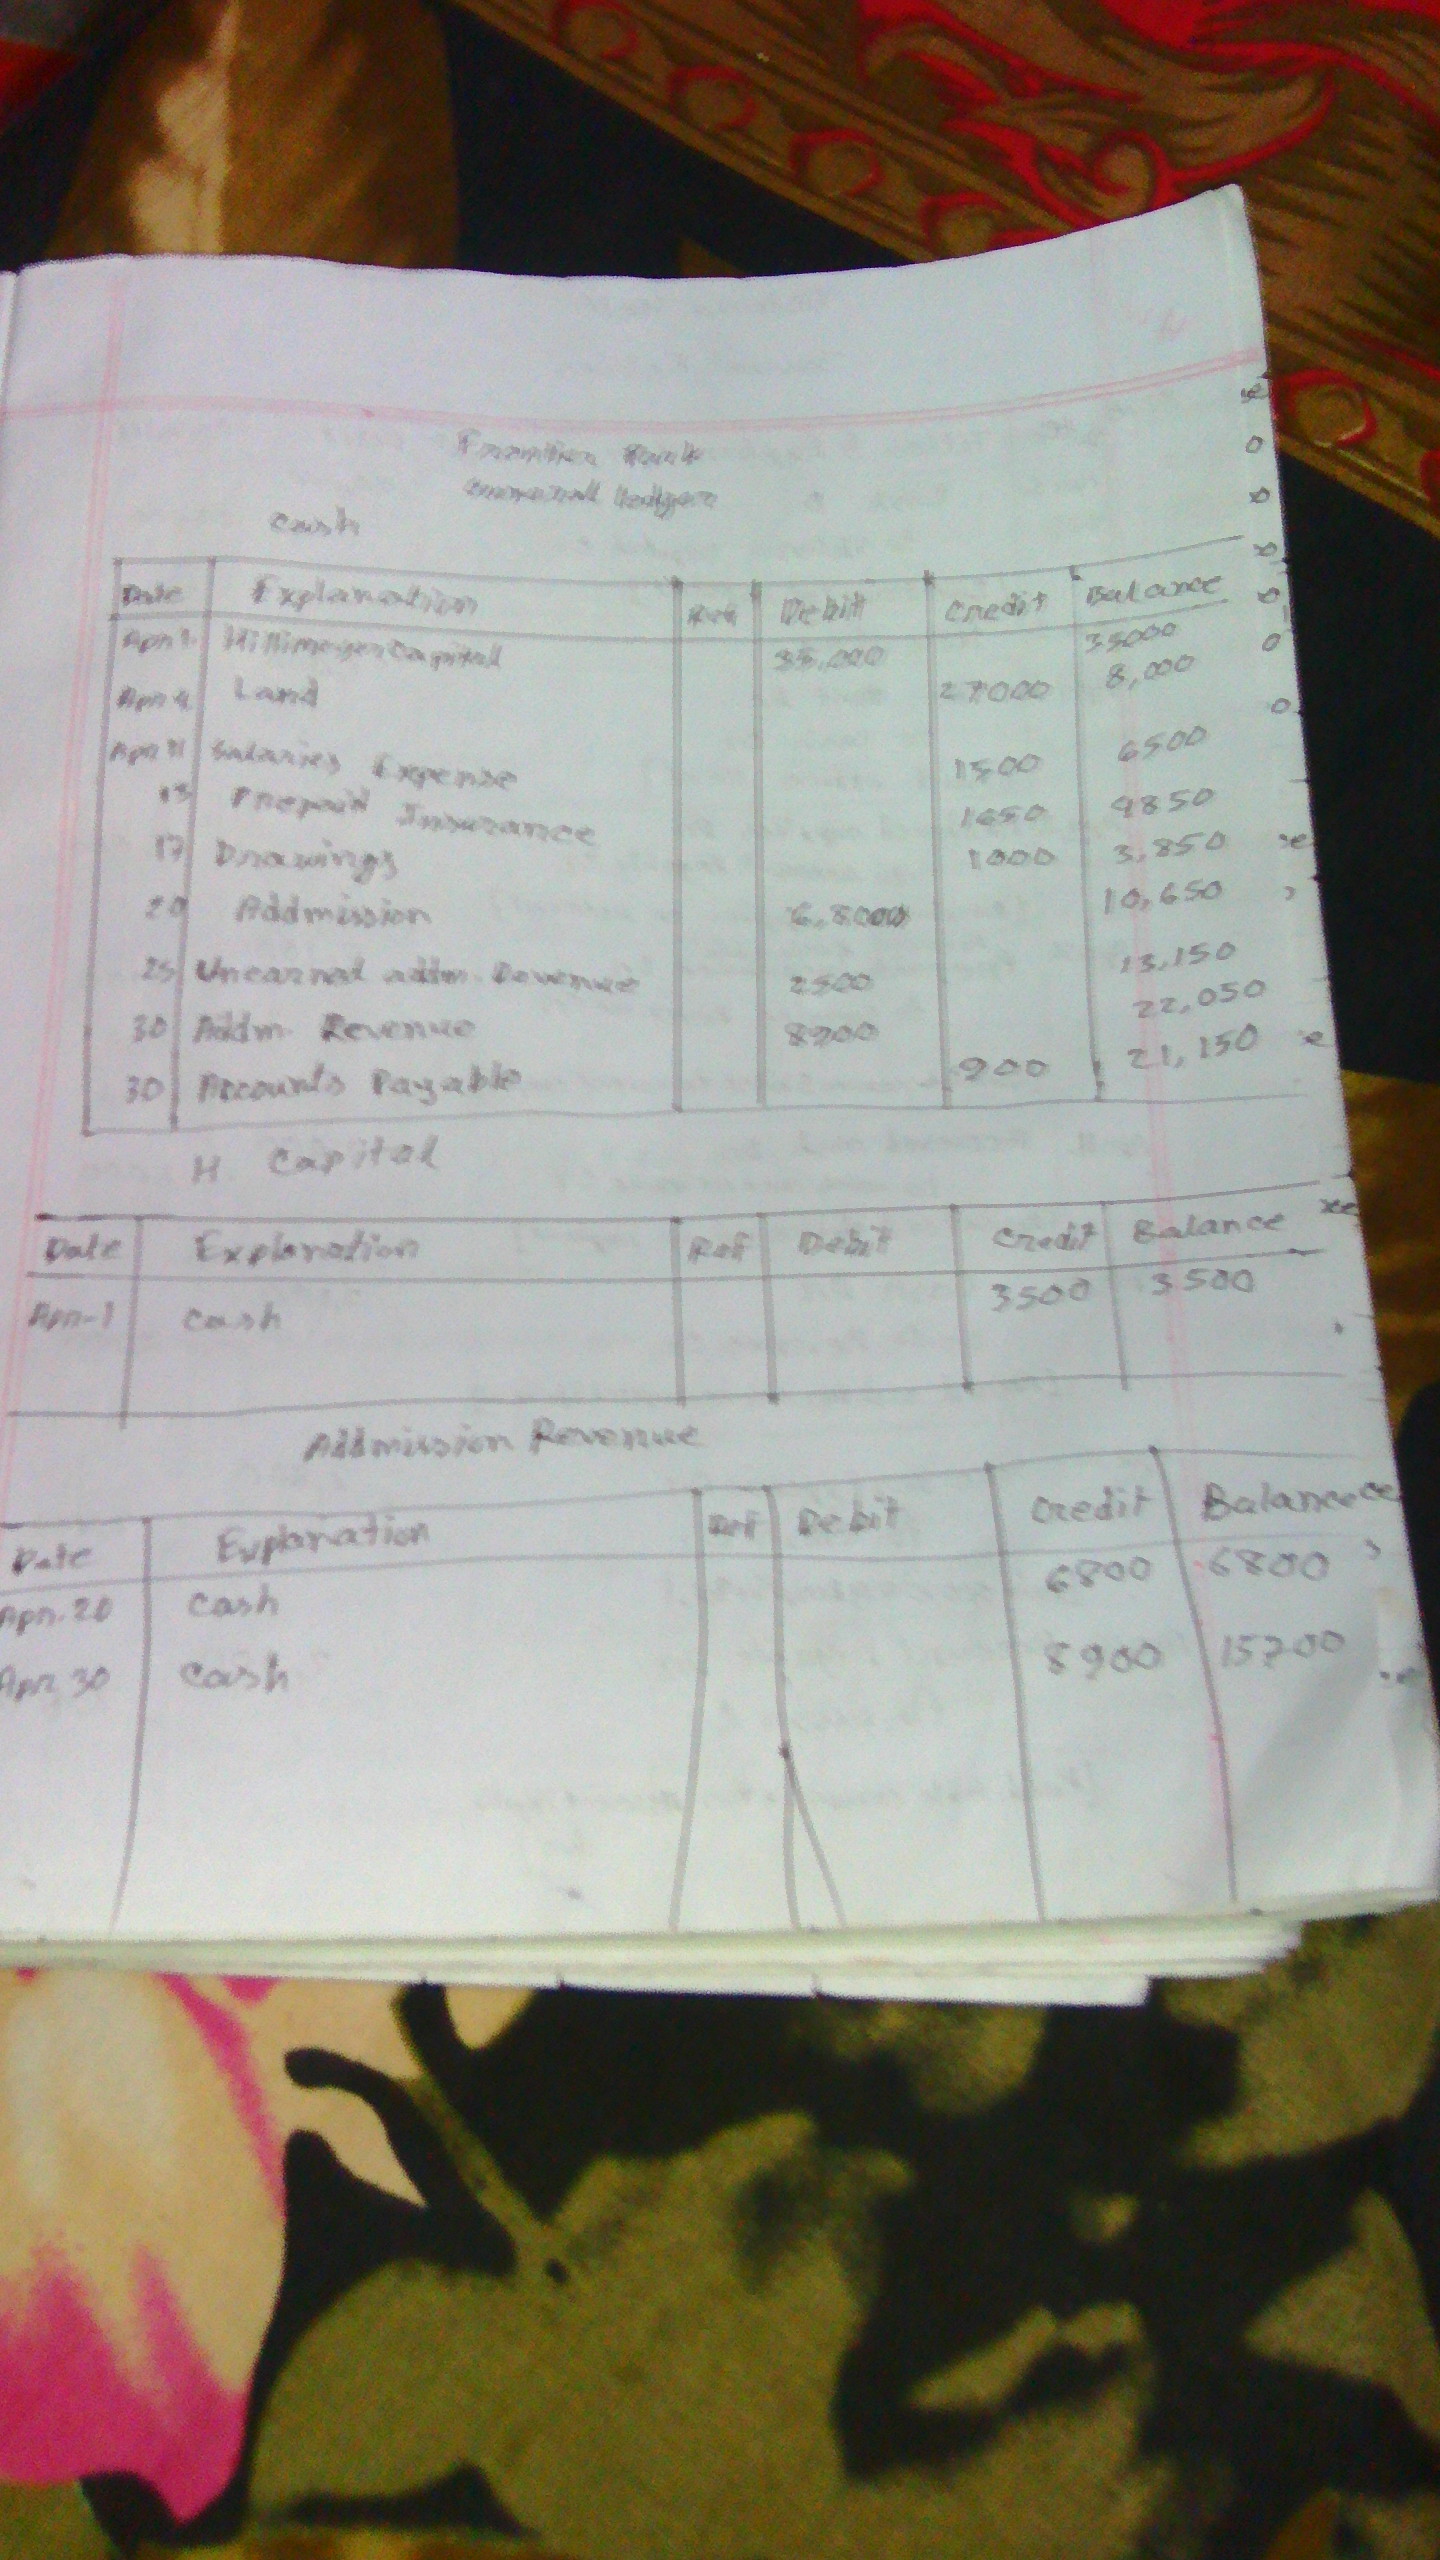 Frontier Park
General Ledger
Cash
Date Explanation Ref Debit Credit Balance
Apr 1 Hillimeyer Capital 35,000 35000
Apr 4 Land 27000 8,000
Apr 11 Salaries Expense 1500 6500
13 Prepaid Insurance 1650 4850
17 Drawings 1000 3,850
20 Addmission 6,800 10,650
25 Unearned addm. Revenue 2500 13,150
30 Addm. Revenue 8900 22,050
30 Accounts Payable 900 21,150
H. Capital
Date Explanation Ref Debit Credit Balance
Apr-1 Cash 3500 3500
Addmission Revenue
Date Explanation Ref Debit Credit Balance
Apr. 20 Cash 6800 6800
Apr. 30 Cash 8900 15700